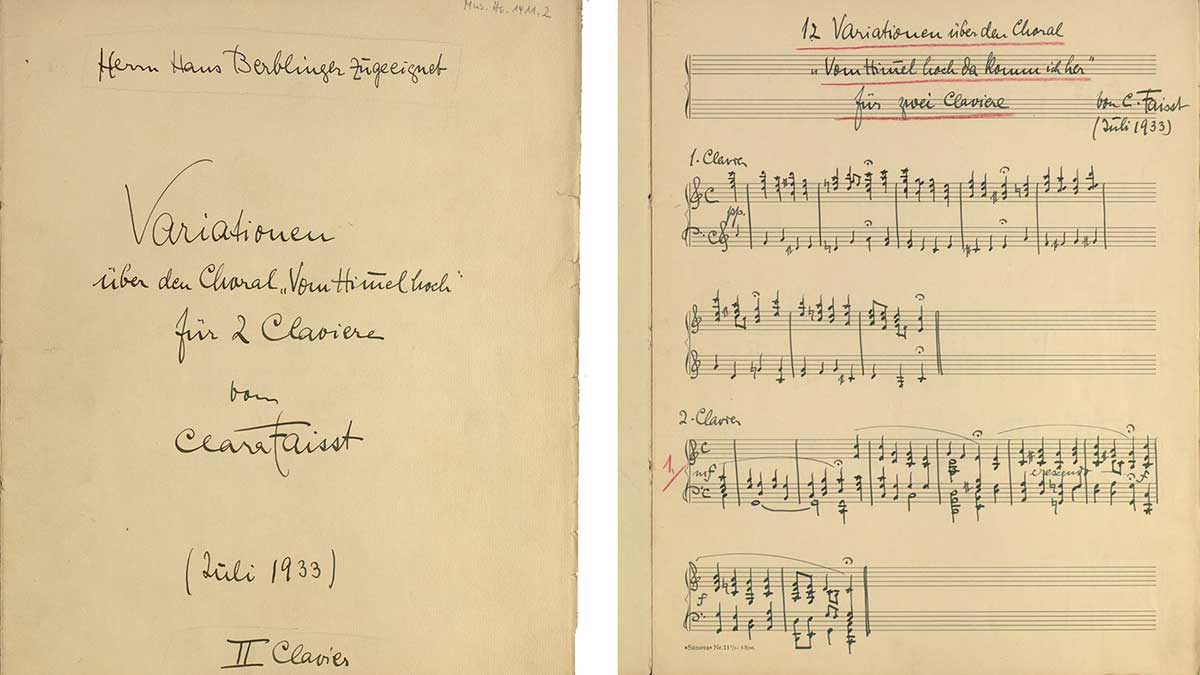 Mus. Hs. 1411,2
Herrn Hans Berblinger zugeeignet
Variationen
über den Choral „Vom Him̅el hoch“
für 2 Claviere
von
Clara Faisst
(Juli 1933)
II Clavier
12 Variationen über den Choral
„Vom Him̅el hoch da komm ich her“
für zwei Claviere
von C. Faisst
(Juli 1933)
1. Clavier
pp.
2. Clavier
1.
mf
crescendo
f
f
»Sünova« Nr. 11